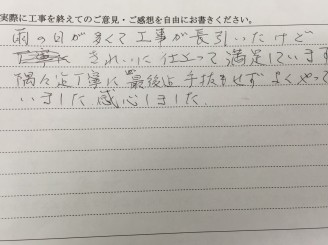 実際に工事を終えてのご意見・ご感想を自由にお書きください。
雨の日が多くて工事が長引いたけど
きれいに仕上って満足しています
隅々迄丁寧に最後迄手抜もせずよくやって
いました感心しました